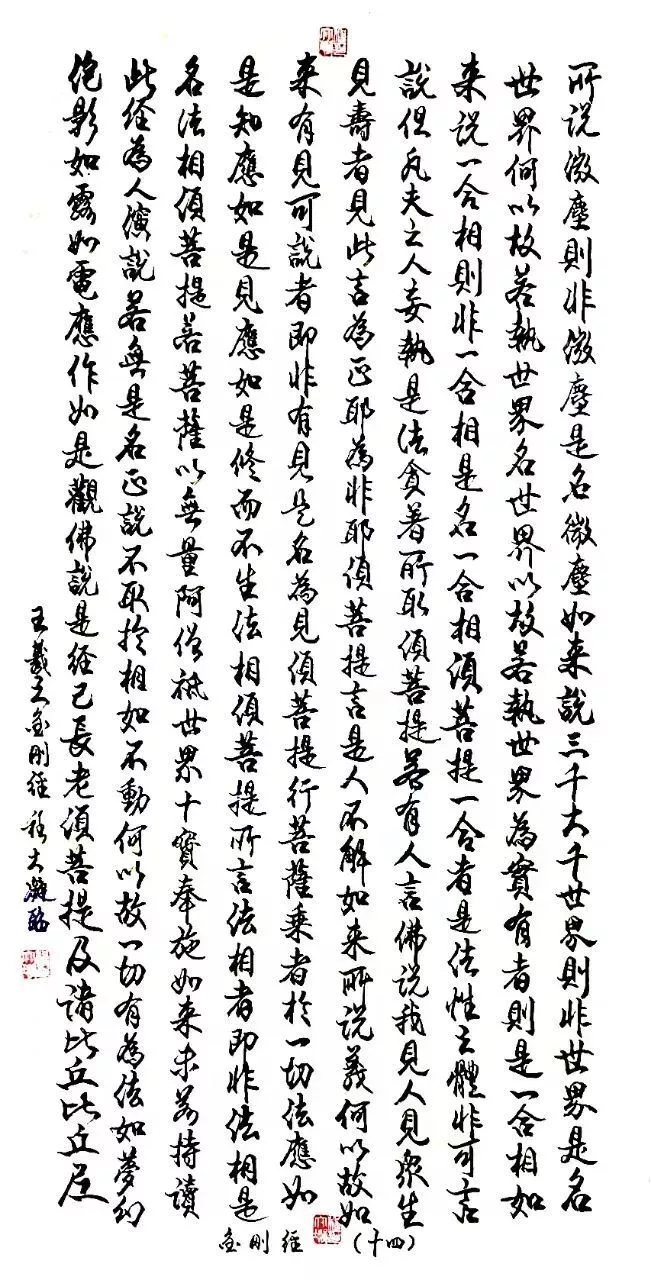 所说微塵則非微塵是名微塵如来說三千大千世界則非世界是名
世界何以故若執世界名世界以故若執世界為實有者則是一合相如
来说一合相則非一合相是名一合相須菩提一合者是法性之體非可言
說但凡夫之人妄執是法貪著所取須菩提若有人言佛說我見人見眾生
見壽者見此言為正耶為非耶須菩提言是人不解如来所说義何以故如
来有見可說者即非有見是名為見須菩提行菩薩乘者於一切法應如
是知應如是見應如是修而不生法相須菩提所言法相者即非法相是
名法相須菩提若菩薩以無量阿僧祇世界十寶奉施如来未若持讀
此经為人演說若無是名正說不取於相如不動何以故一切有為法如夢幻
泡影如露如電應作如是觀佛說是經已長老須菩提及諸比丘比丘尼
王羲之金刚经
金刚经 (十四)